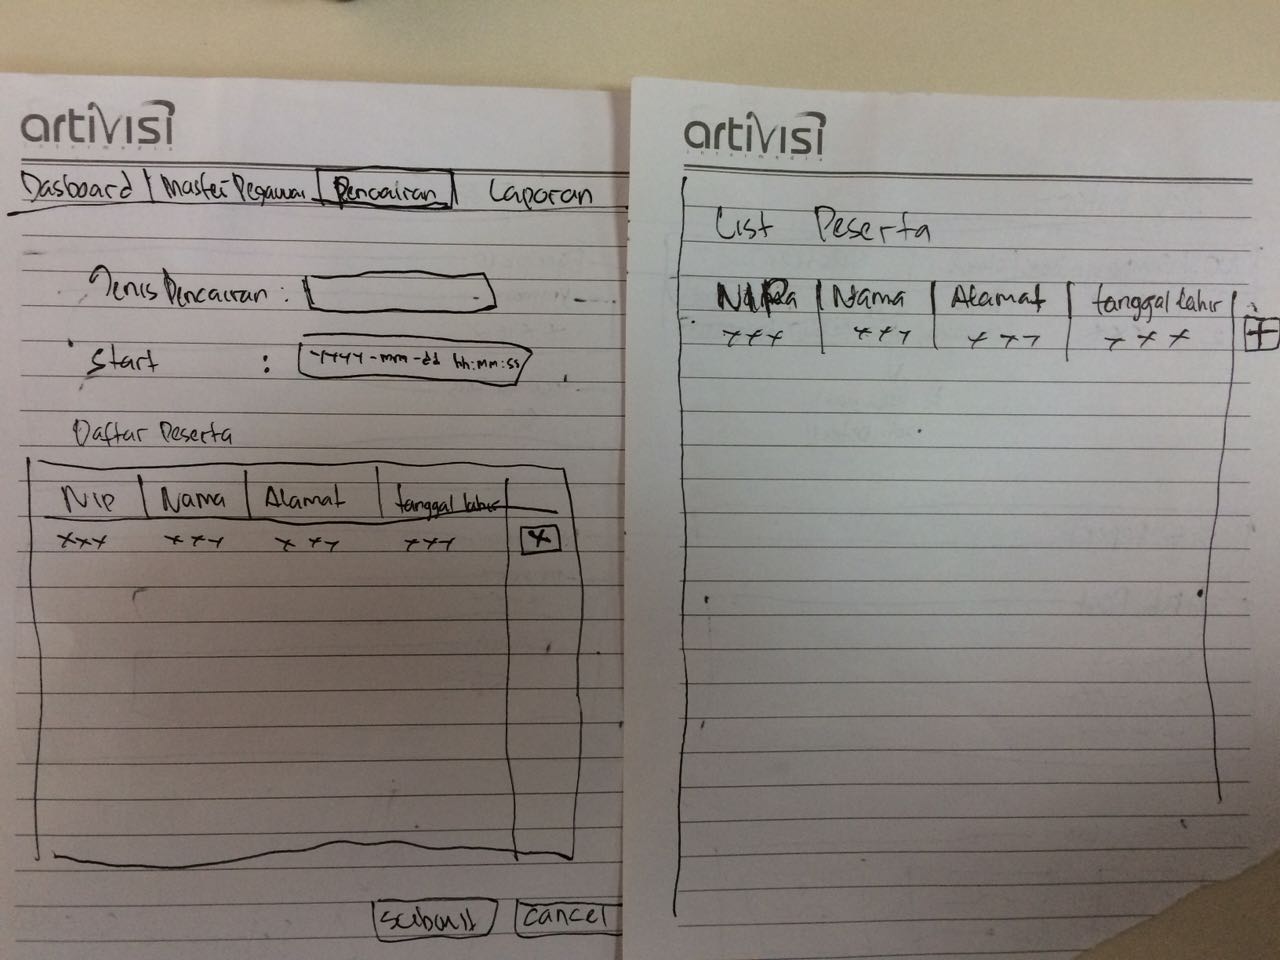 artivisi
intermedia
Dasboard | Master Pegawai | Pencairan | Laporan
Jenis Pencairan :
Start : YYYY-mm-dd hh:mm:ss
Daftar Peserta
NIP | Nama | Alamat | tanggal lahir
xxx xxx xxx xxx x
submit cancel
artivisi
intermedia
List Peserta
NIP | Nama | Alamat | tanggal lahir
xxx xxx xxx xxx +